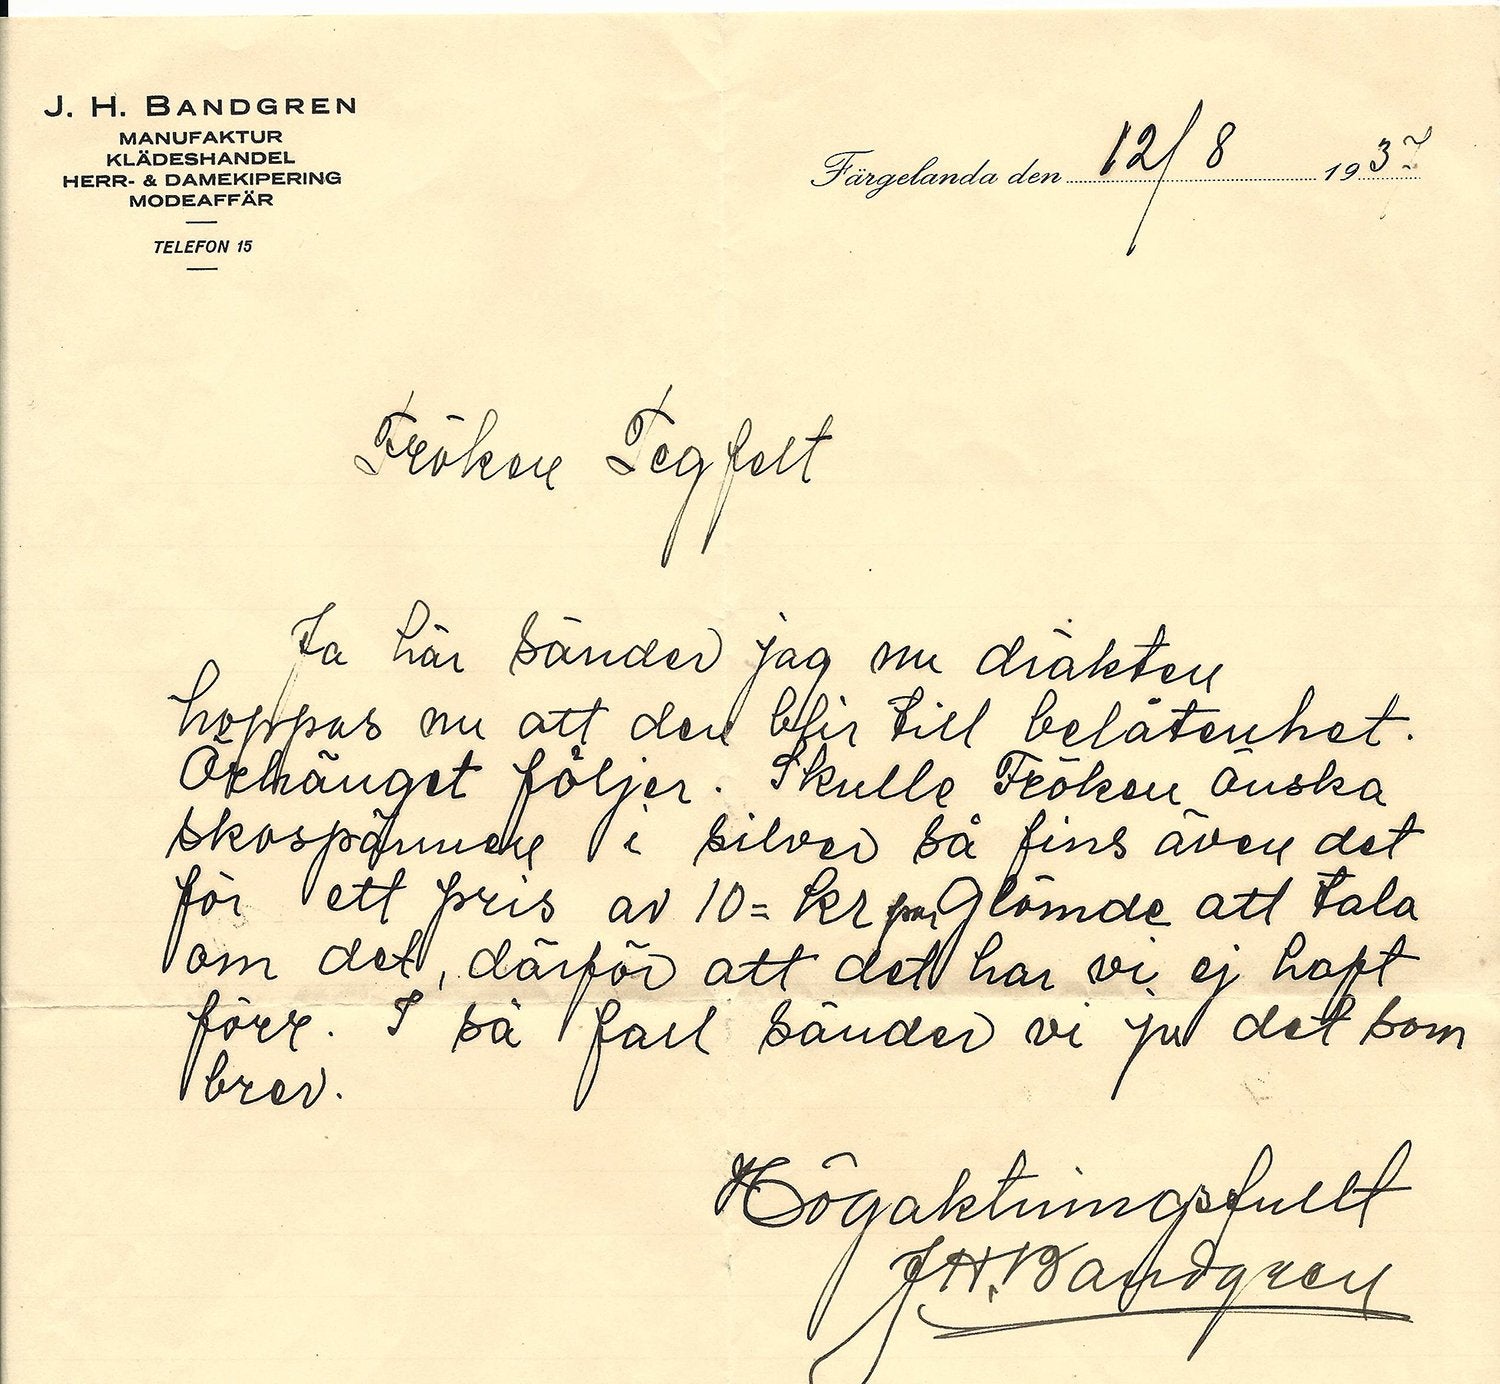 J. H. BANDGREN
MANUFAKTUR
KLÄDESHANDEL
HERR- & DAMEKIPERING
MODEAFFÄR
TELEFON 15
Färgelanda den 12/8 1937
Fröken Tegfelt
Ja här sänder jag nu dräkten
hoppas nu att den blir till belåtenhet.
Örhänget följer. Skulle Fröken önska
skospännen i silver så fins även det
för ett pris av 10= kr par Glömde att tala
om det, därför att det har vi ej haft
förr. I så fall sänder vi ju det som
brev.
Högaktningsfullt
J.H. Bandgren